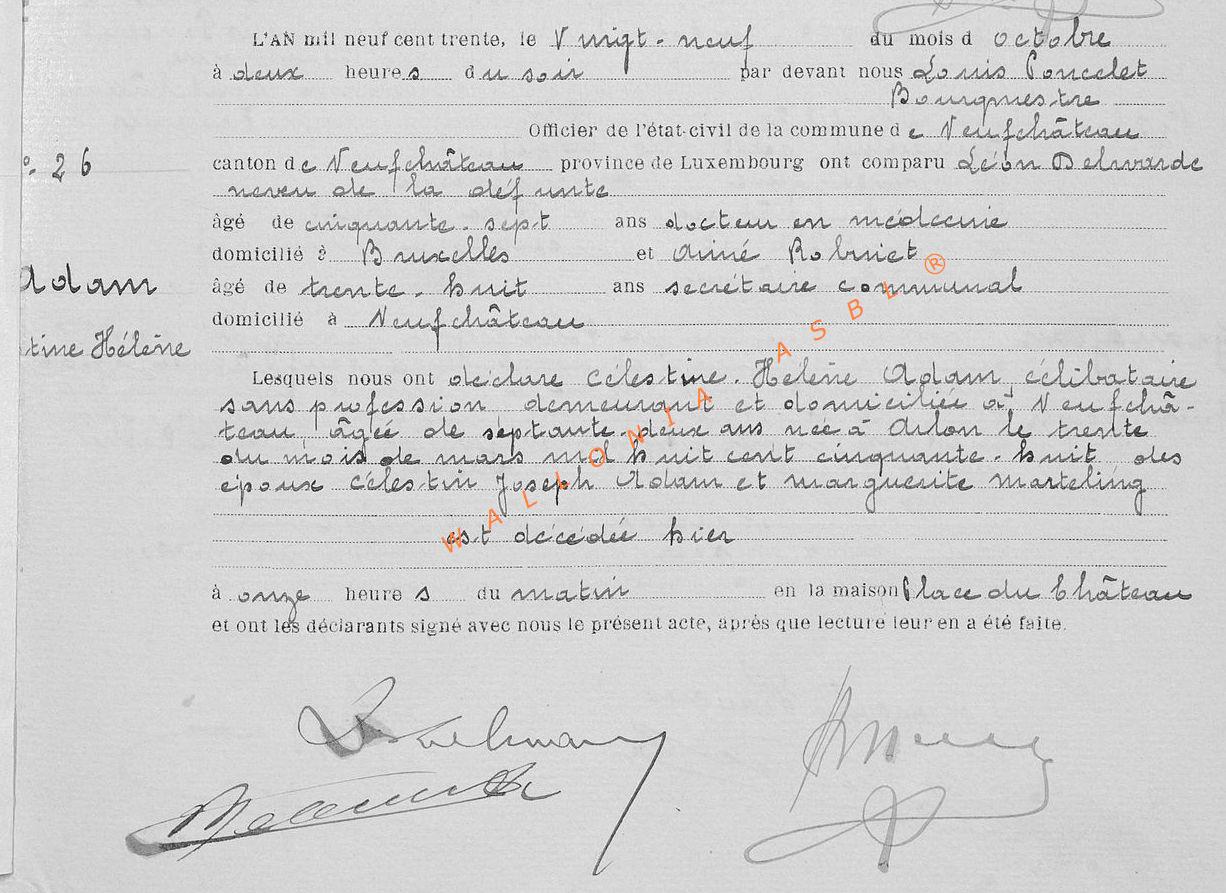 L'AN mil neuf cent trente, le Vingt-neuf du mois d octobre
à deux heures du soir par devant nous Louis Poncelet
Bourgmestre
Officier de l'état-civil de la commune de Neufchâteau
° 26
canton de Neufchâteau province de Luxembourg ont comparu Léon Delvarde
neveu de la défunte
âgé de cinquante-sept ans docteur en médecine
domicilié à Bruxelles et Aimé Robinet
Adam
âgé de trente-huit ans secrétaire communal
domicilié à Neufchâteau
tine Hélène
Lesquels nous ont déclaré Célestine-Hélène Adam, célibataire
sans profession, demeurant et domiciliée à Neufchâ-
teau, âgée de septante-deux ans née à Arlon le trente
du mois de mars mil huit cent cinquante-huit des
époux Célestin Joseph Adam et Marguerite Marteling
est décédée hier
à onze heures du matin en la maison Place du Château
et ont les déclarants signé avec nous le présent acte, après que lecture leur en a été faite.
WALLONIA ASBL ®